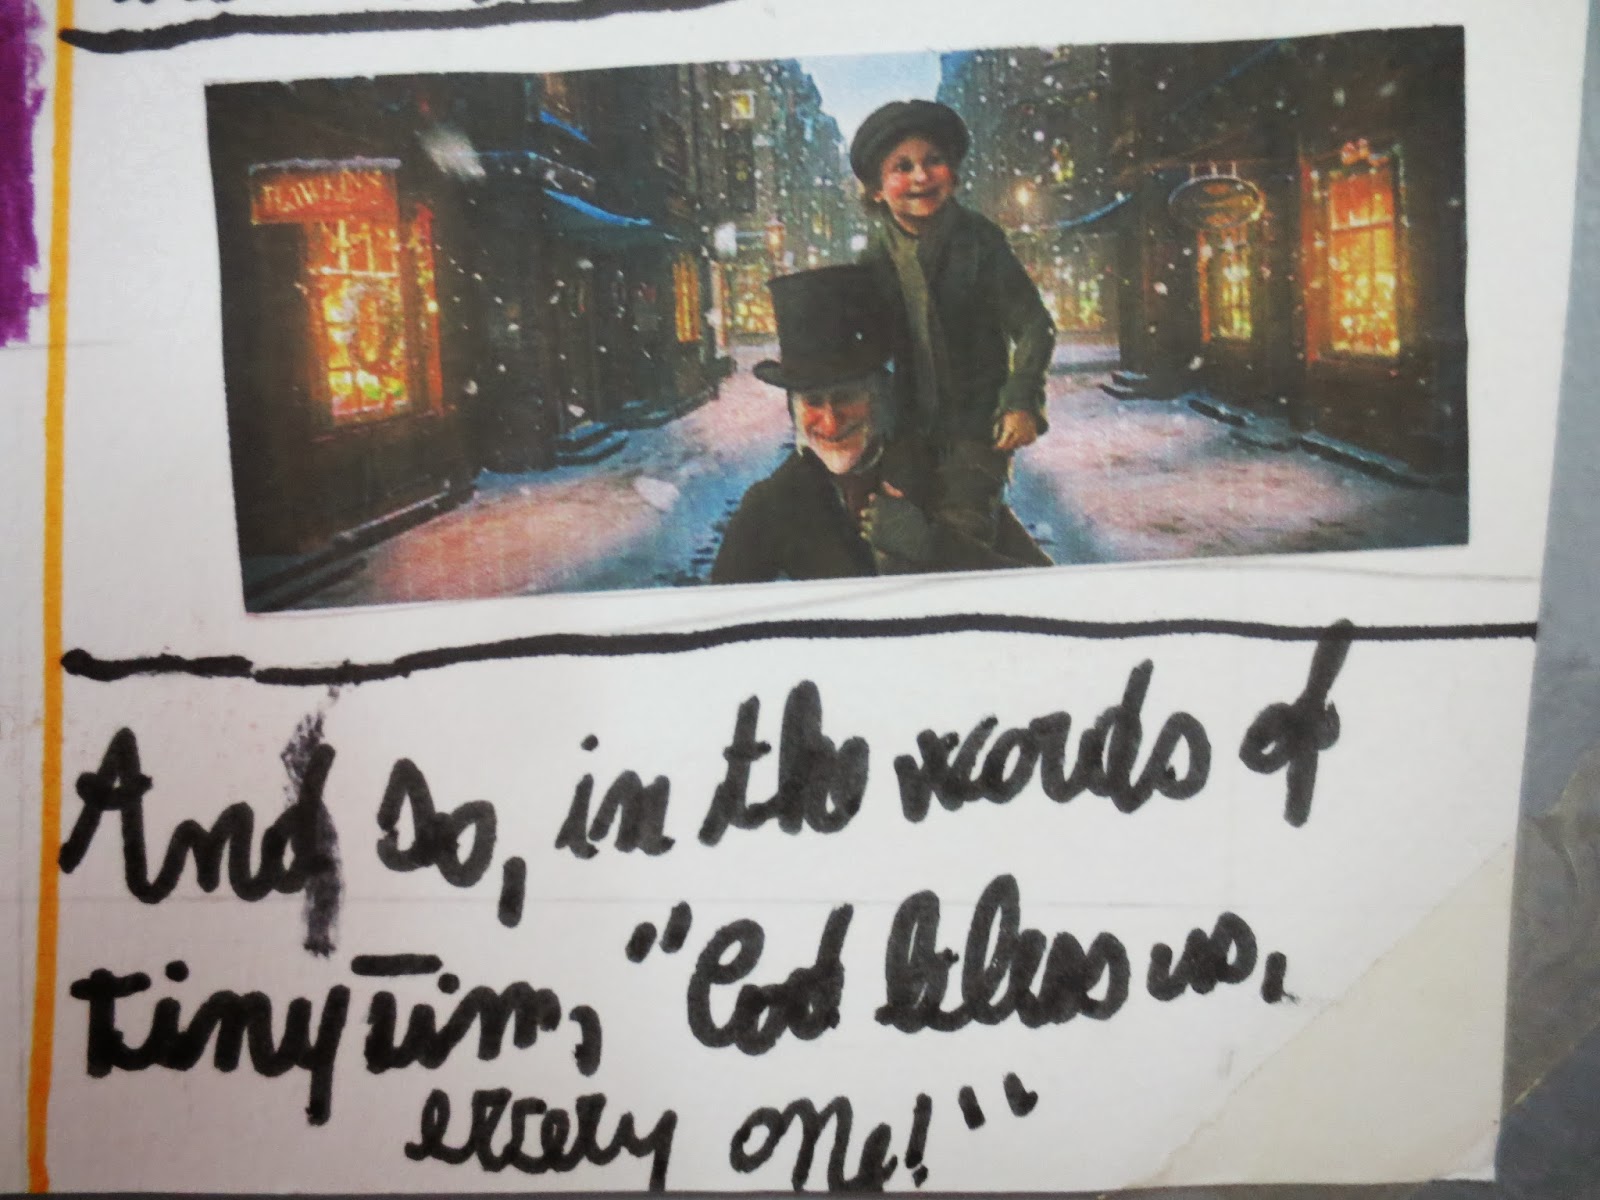 HAWKINS
And so, in the words of
tinyTim, "God bless us,
every one!"